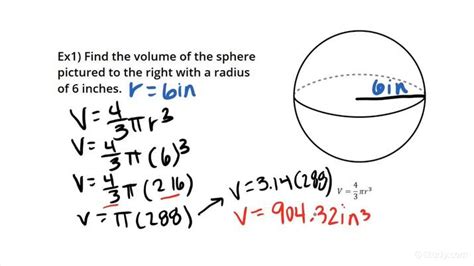 Ex1) Find the volume of the sphere
pictured to the right with a radius
of 6 inches. r = 6in
6in
V = 4/3 πr³
V = 4/3 π(6)³
V = 4/3 π(216)
V = π(288)
V = 3.14(288)
V = 4/3 πr³
V = 904.32in³
© Study.com